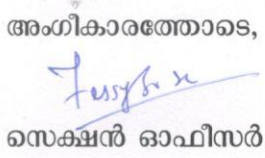 അംഗീകാരത്തോടെ,
സെക്ഷൻ ഓഫീസർ